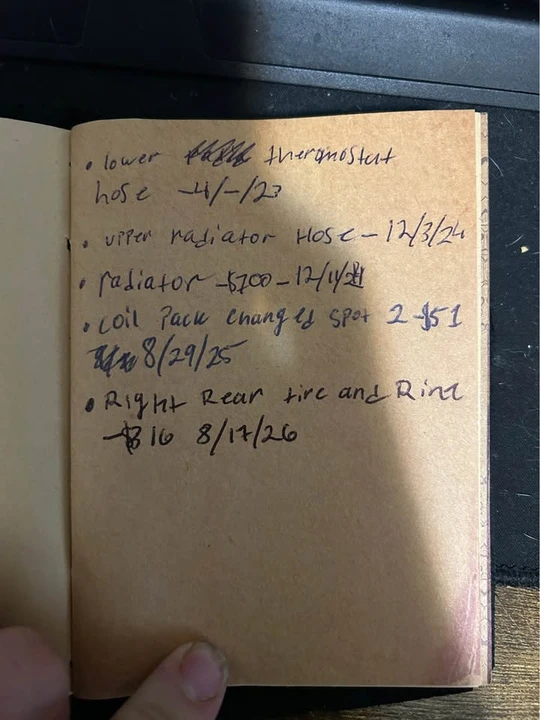 • lower thermostat
hose -4/-/23
• upper radiator Hose - 12/3/24
• radiator -$700 - 12/11/24
• coil Pack changed spot 2 -$51
8/29/25
• Right Rear tire and Rim
-$16 8/17/26